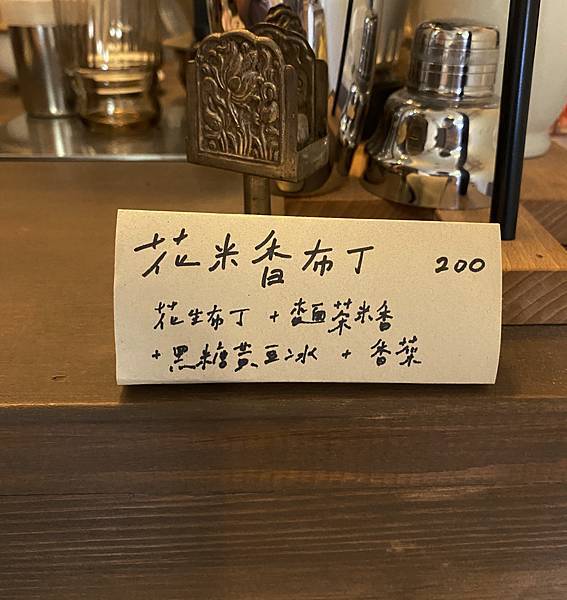 花米香布丁 200
花生布丁 + 麵茶米香
+ 黑糖黃豆冰 + 香菜